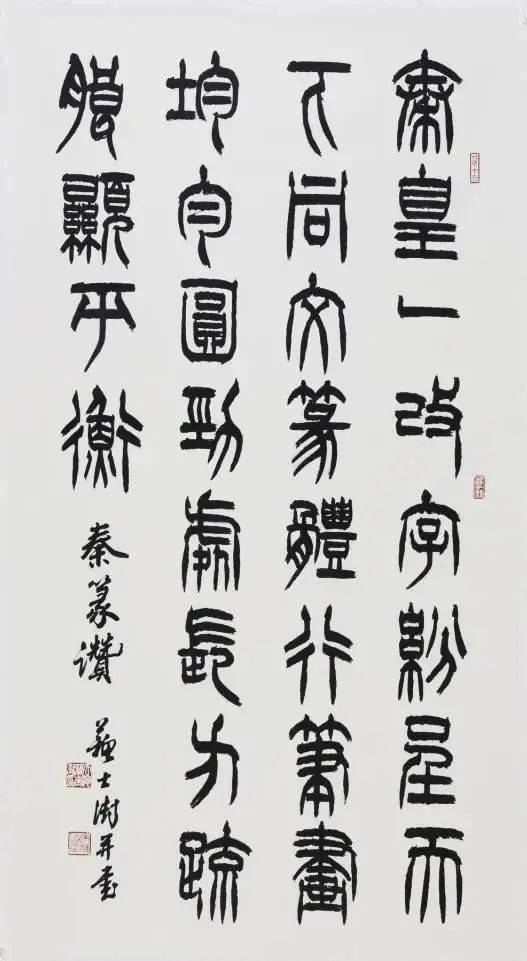 秦皇一改字紛呈天
下同文篆體行筆畫
均勻圓勁處長方疏
朗顯平衡
秦篆讚
蘇士澍并書